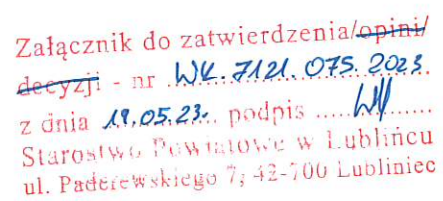 Załącznik do zatwierdzenia/opini/
decyzji - nr WK. 7121. 075. 2023.
z dnia 19.05.23. podpis ............
Starostwo Powiatowe w Lublińcu
ul. Paderewskiego 7, 42-700 Lubliniec